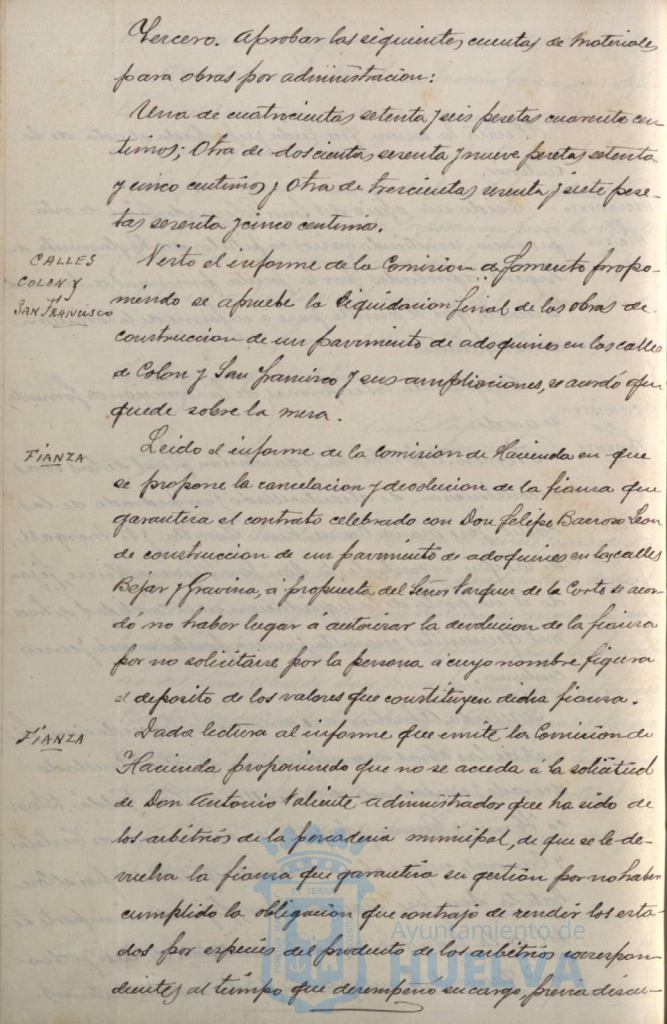 Tercero. Aprobar las siguientes cuentas de materiales
para obras por administracion:
Una de cuatrocientas setenta y seis pesetas cuarenta cen-
timos; Otra de doscientas sesenta y nueve pesetas setenta
y cinco centimos y Otra de trescientas sesenta y siete pese-
tas sesenta y cinco centimos.
CALLES
COLON Y
SAN FRANCISCO
Visto el informe de la Comision de fomento propo-
niendo se apruebe la liquidacion final de las obras de
construccion de un pavimento de adoquines en las calles
de Colon y San Francisco y sus ampliaciones, se acordó que
quede sobre la mesa.
FIANZA
Leido el informe de la comision de Hacienda en que
se propone la cancelacion y devolucion de la fianza que
garantiza el contrato celebrado con Don Felipe Barroso Leon
de construccion de un pavimento de adoquines en las calles
Bejar y Gravina, á propuesta del Señor Vazquez de la Corte se acor-
dó no haber lugar á autorizar la devolucion de la fianza
por no solicitarse por la persona á cuyo nombre figura
el deposito de los valores que constituyen dicha fianza.
FIANZA
Dada lectura al informe que emite la Comision de
Hacienda proponiendo que no se acceda á la solicitud
de Don Antonio Valiente administrador que ha sido de
los arbitrios de la pescaderia municipal, de que se le de-
vuelva la fianza que garantiza su gestion por no haber
cumplido la obligacion que contrajo de rendir los esta-
dos por especies del producto de los arbitrios correspon-
dientes al tiempo que desempeñó su cargo, previa discu-
Ayuntamiento de
HUELVA